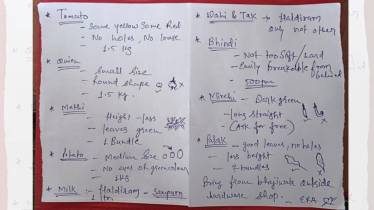 * Tomato
- Some yellow Some Red
- No holes, No loose
- 1.5 kg
* Onion
- Small size
- Round shape
- 1.5 kg.
* Methi
- Height - less
- leaves green
- 1 Bundle
* Potato
- Medium Size
- No eyes or green colour
- 1 kg
* Milk - Haldiram - Sampurn
1 ltr
* Dahi & Tak → Haldiram
only not other
* Bhindi
- Not too Soft / hard
- Easily breakable from behind
- 500 gm
* Mirchi - Dark green
- long straight
- (Ask for free)
* Palak
- good leaves, no holes
- less height
- 2 bundles
Bring from bhajiwala outside
hardware shop.